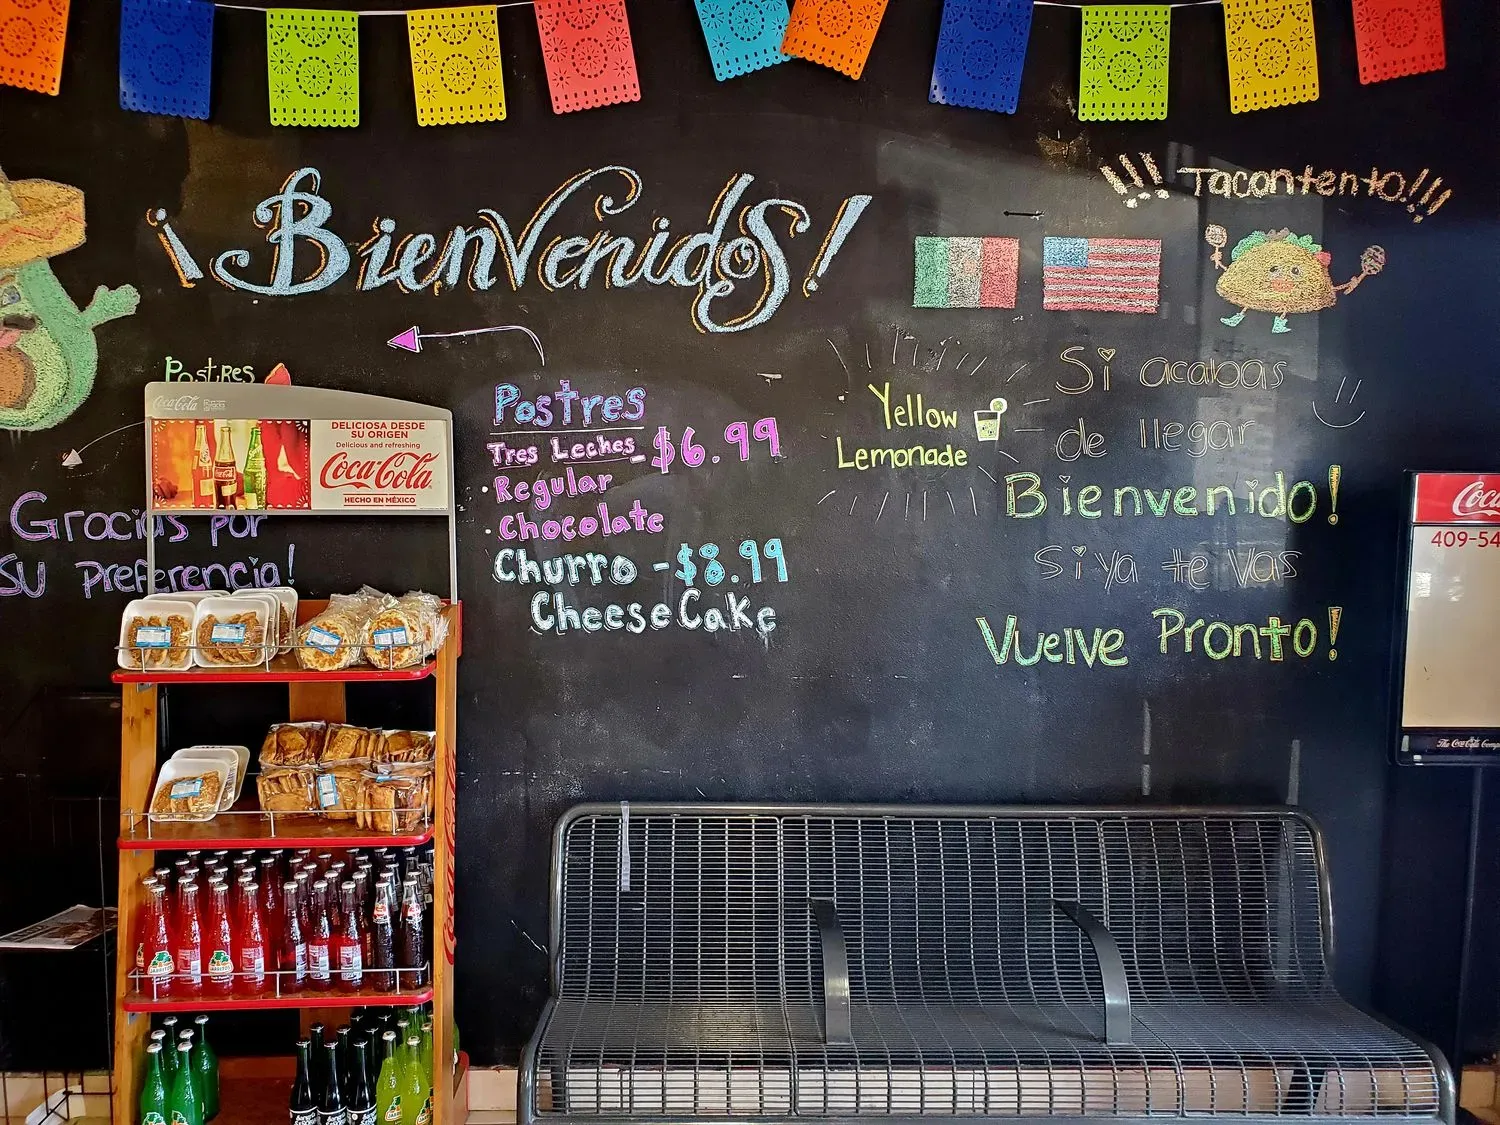 ¡Bienvenidos!
¡¡¡Tacontento!!!
Postres
Gracias por
su preferencia!
Coca-Cola
DELICIOSA DESDE
SU ORIGEN
Delicious and refreshing
Coca-Cola
HECHO EN MÉXICO
Postres
Tres Leches - $6.99
· Regular
· Chocolate
Churro - $8.99
CheeseCake
Yellow
Lemonade
Si acabas
de llegar
Bienvenido!
Si ya te vas
Vuelve Pronto!
Coca
409-54
The Coca-Cola Comp
JARRITOS
JARRITOS
Coca-Cola